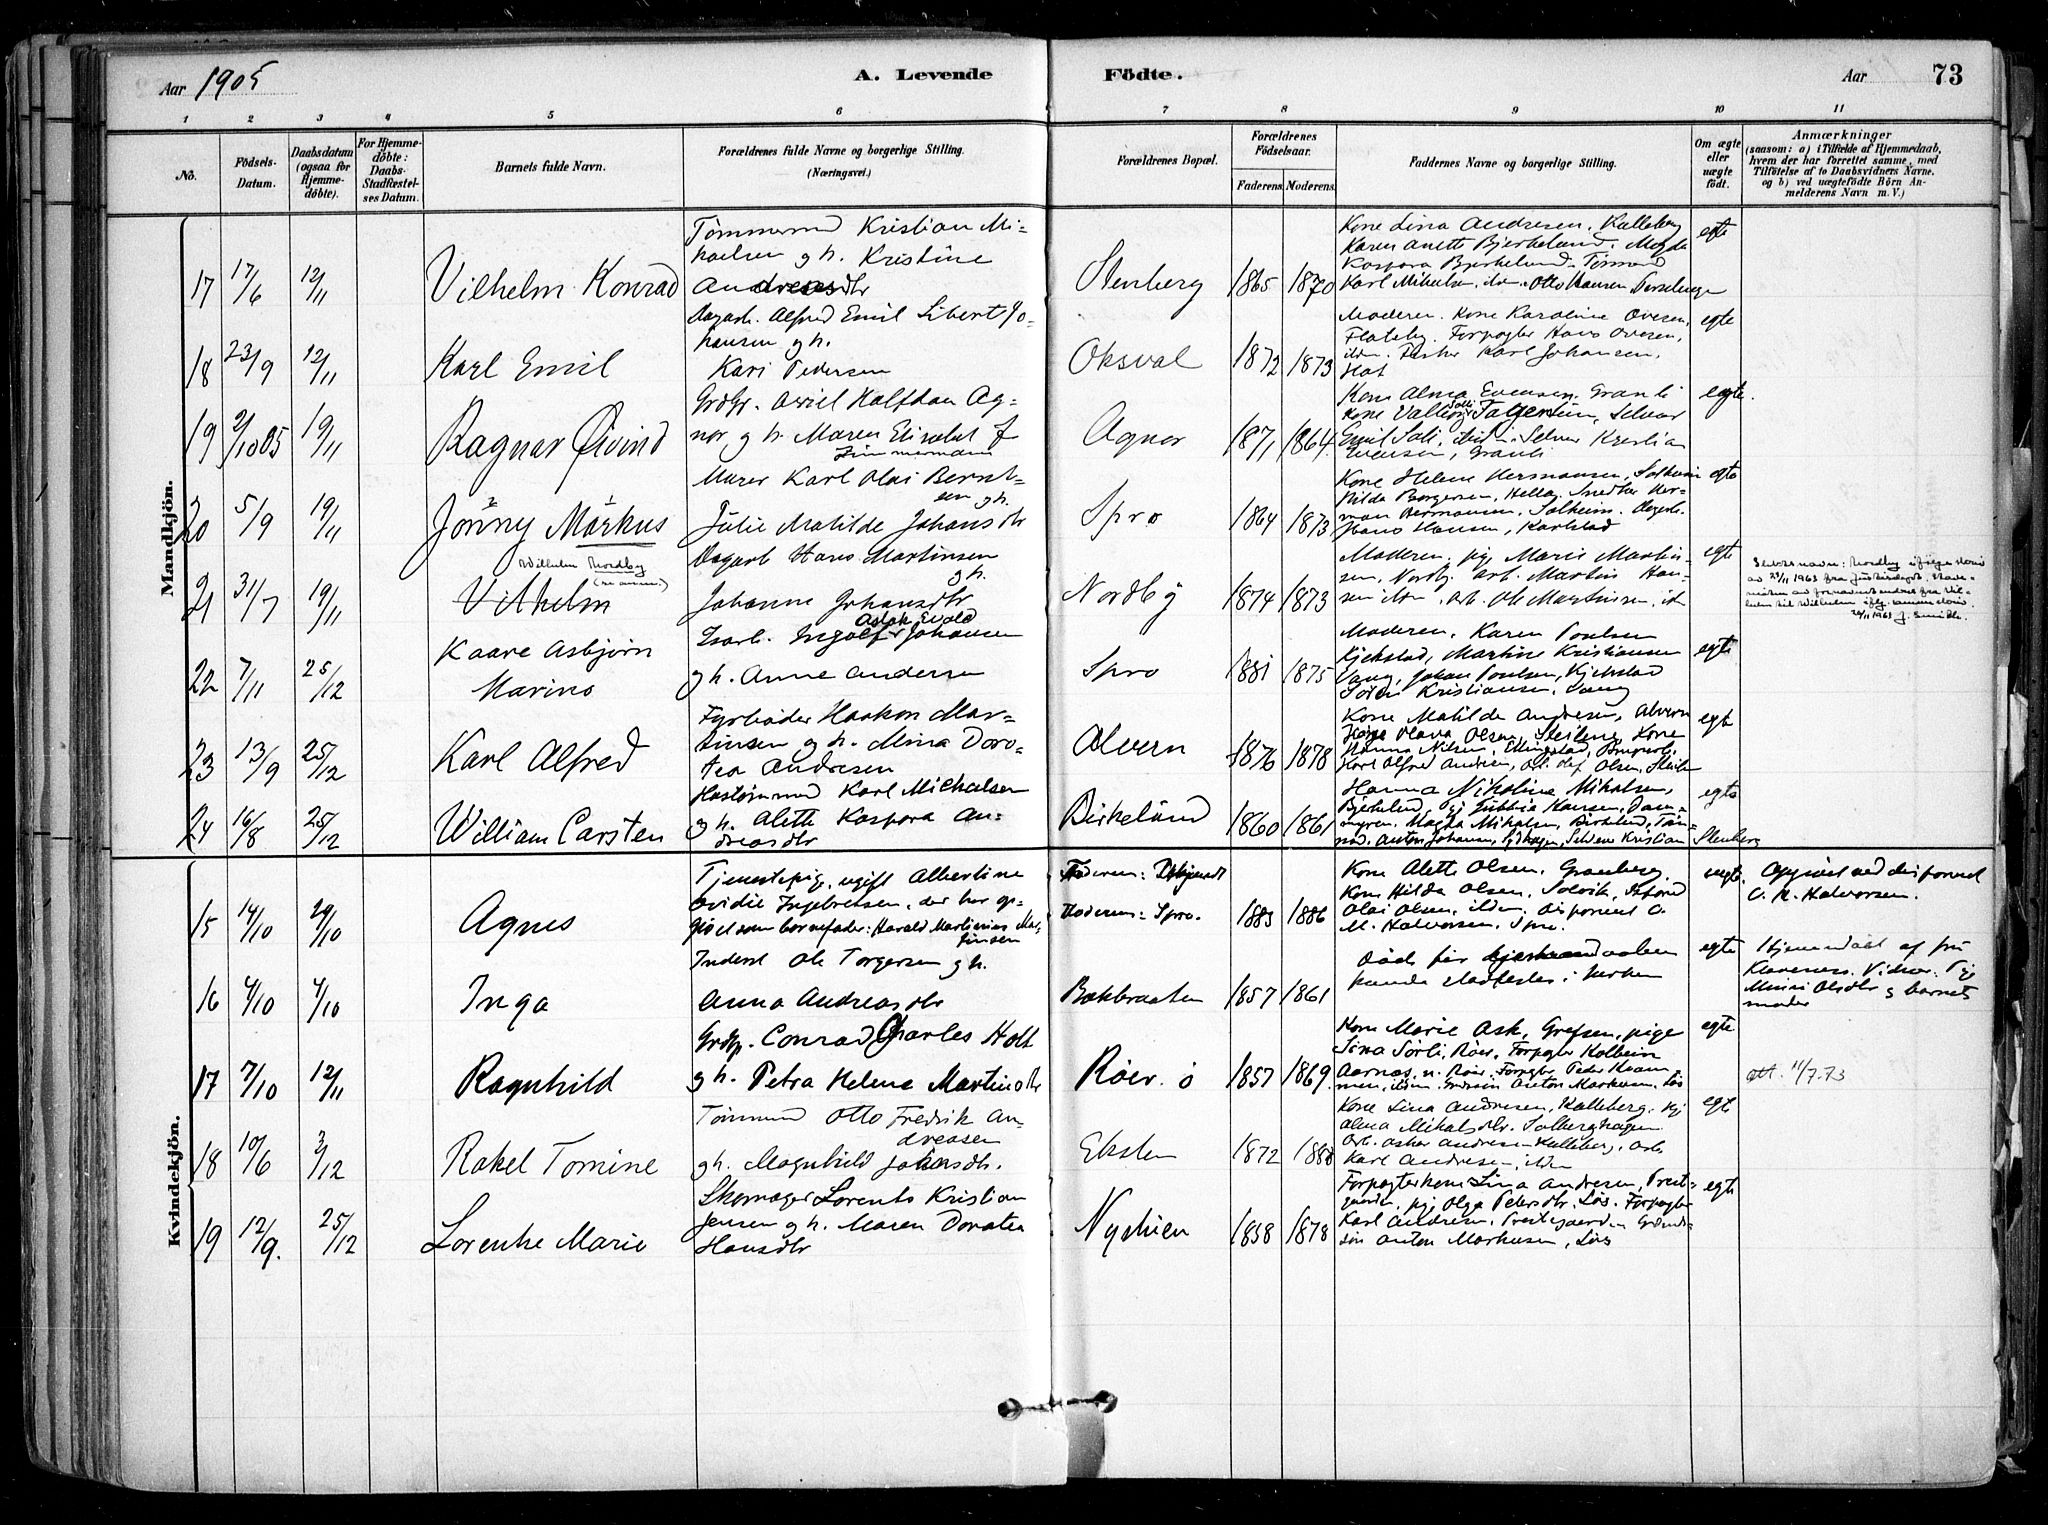 Aar 1905
A. Levende
Födte.
Aar
73
1 2 3 4 5 6 7 8 9 10 11
No.
Födsels-Datum.
Daabsdatum (ogsaa for Hjemme-döbte).
For Hjemme-döbte: Daabs-Stadfæstel-ses Datum.
Barnets fulde Navn.
Forældrenes fulde Navne og borgerlige Stilling.
(Næringsvei.)
Forældrenes Bopæl.
Forældrenes Födselsaar.
Faderens. Moderens.
Faddernes Navne og borgerlige Stilling.
Om ægte eller uægte födt.
Anmærkninger
(saasom: a) i Tilfælde af Hjemmedaab, hvem der har forrettet samme, med Tilföielse af to Daabsvidners Navne, og b) ved uægtefödte Börn An-melderens Navn m. V.)
Mandkjön.
17 17/6 12/11 Vilhelm Konrad
Tømmermd Kristian Mi-
haelsen g h. Kristine
Andreasdtr
Stenberg 1865 1870
Kone Lina Andresen, Kalleberg
Karen Anette Bjerkelund, Magda
Kaspara Bjerkelund. Tømmd
Karl Mikelsen, ildn. Otto Hansen
egte
18 23/9 12/11 Karl Emil
Dagarb. Alfred Emil Libert Jo-
hansen g h.
Kari Pedersen
Oksval 1872 1873
Moderen. Kone Karoline Ovesen,
Flateby. Forpagter Hans Ovesen,
ildn. Fisker Karl Johansen,
egte
19 2/10 05 19/11 Ragnar Øivind
Grdbr. Axel Halfdan Ag-
nor, g h. Maren Elisabet f
Zimmermann
Agnor 1871 1864.
Kone Alma Evensen, Granli
Emil Soli, Selvei Kristian
Evensen, Granli
egte.
20 5/9 19/11 Jonny Markus
Murer Karl Olai Bernt-
sen g h.
Julie Matilde Johansdtr
Spro 1864 1873
Kone Helene Hermansen, Solheim
Hilda Borgersen, Hellag. Snedker Her-
man Hermansen, Solheim. Dagarb.
Hans Hansen, Karlstad
egte
21 31/7 19/11 Wilhelm Nordby
Vilhelm
Dagarb Hans Martinsen
g h.
Johanne Johansdtr
Nordby 1874 1873
Moderen, pige Marie Martin-
sen, Nordby. Arb. Martin Han-
sen ildn. Arb. Ole Martinsen, ildn
egte
Slektsnavn: Nordby ifølge
av 23/11 1963 fra Justisdept.
22 7/11 25/12 Kaare Asbjørn
Marino
Aslak Evald
Isarb. Ingolf Johansen
g h. Anne Andersen
Spro 1881 1875
Moderen, Karen Poulsen
Kjekstad, Martine Kristiansen
Vang, Johan Poulsen, Kjekstad
Sören Kristiansen, Vang
egte
23 13/9 25/12 Karl Alfred
Fyrbøder Haakon Mar-
tinsen g h. Mina Doro-
tea Andresen
Alvern 1876 1878
Kone Matilde Andresen, Alvern
Olava Olsen, Kone
Hanna Nilsen,
Karl Alfred Andresen, Arb. Olaf Olsen,
egte
24 16/8 25/12 William Carsten
Karl Michalsen
g h. Alette Kaspara An-
dreasdtr
Birkelund 1860 1861
Hanna Nikoline Mikalsen,
Bjerkelund, Hansen,
Magda Mikalsen, Birkelund,
Anton Johansen, Kristian Stenberg
egte
Kvindekjön.
15 14/10 29/10 Agnes
Tjenestepige, ugift Albertine
Ovidie Ingebretsen, der har op-
givet som barnefader: Harald Martinius Mar-
tinsen
Faderen:
Moderen: Spro. 1883 1886
Kone Alette Olsen, Granberg.
Kone Hilda Olsen, Solvik,
Olai Olsen, ildn, Disponent O.
M. Halvorsen. Spro.
uegt.
Opgivet ved disponent
O. M. Halvorsen.
16 4/10 4/10 Inga
Inderst Ole Torgersen g h.
Anna Andreasdtr
Bækbraaten 1857 1861
Død før hjemmedaaben
kunde stadfestes i kirken
egte
Hjemmedøbt af fru
Klaveness. Vidner: Pige
Mini Olsdtr og barnets
moder
17 7/10 12/11 Ragnhild
Grdbr. Conrad Charles Holt
g h. Petra Helene Martinsdtr
Røer. ø 1857 1869.
Kone Marie Ask, Grefsen, pige
Lina Sørli, Røer, Forpagter Kolbein
Aarnæs, n. Røer. Forpagter Peder Kvam-
men, ildn. Anton Markusen, Løs
egte
att. 11/7.73
18 10/6 3/12 Rakel Tomine
Tømmermd Otto Fredrik An-
dreasen
g h. Magnhild Johansdtr.
Eksten 1872 1880
Kone Lina Andresen, Kalleberg. pi
Alma Mikalsdtr. Solberghagen
Arb. Oskar Andresen Kalleberg, Arb.
Karl Andresen, ildn
egte
19 12/9. 25/12 Lorentze Marie
Skomager Lorents Kristian
Jensen g h. Maren Dorotea
Hansdtr
Nystuen 1858 1878
Forpagterkone Lina Andresen, Prest-
gaarden, pige Olga Petersdtr. Løs. Forpagter
Karl Andresen, Prestegaarden Grdm-
Anton Markusen, Løs
egte